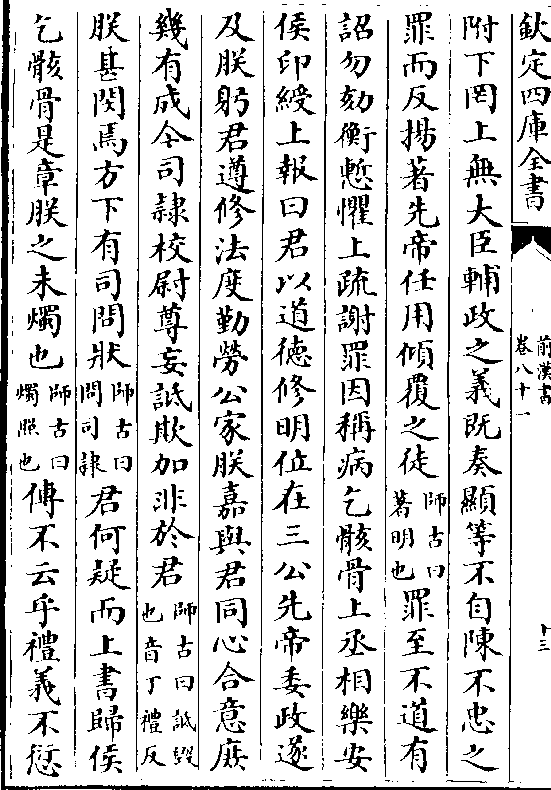 欽定四庫全書
前漢書
卷八十一
十三
附下罔上無大臣輔政之義既奏顯等不自陳不忠之
罪而反揚著先帝任用傾覆之徒師古曰著明也罪至不道有
詔勿劾衡慙懼上疏謝罪因稱病乞骸骨上丞相樂安
侯印綬上報曰君以道德修明位在三公先帝委政遂
及朕躬君遵修法度勤勞公家朕嘉與君同心合意庶
幾有成今司隷校尉尊妄詆欺加非於君師古曰詆毁也音丁禮反
朕甚閔焉方下有司問狀師古曰問司隷君何疑而上書歸侯
乞骸骨是章朕之未燭也師古曰燭照也傳不云乎禮義不愆